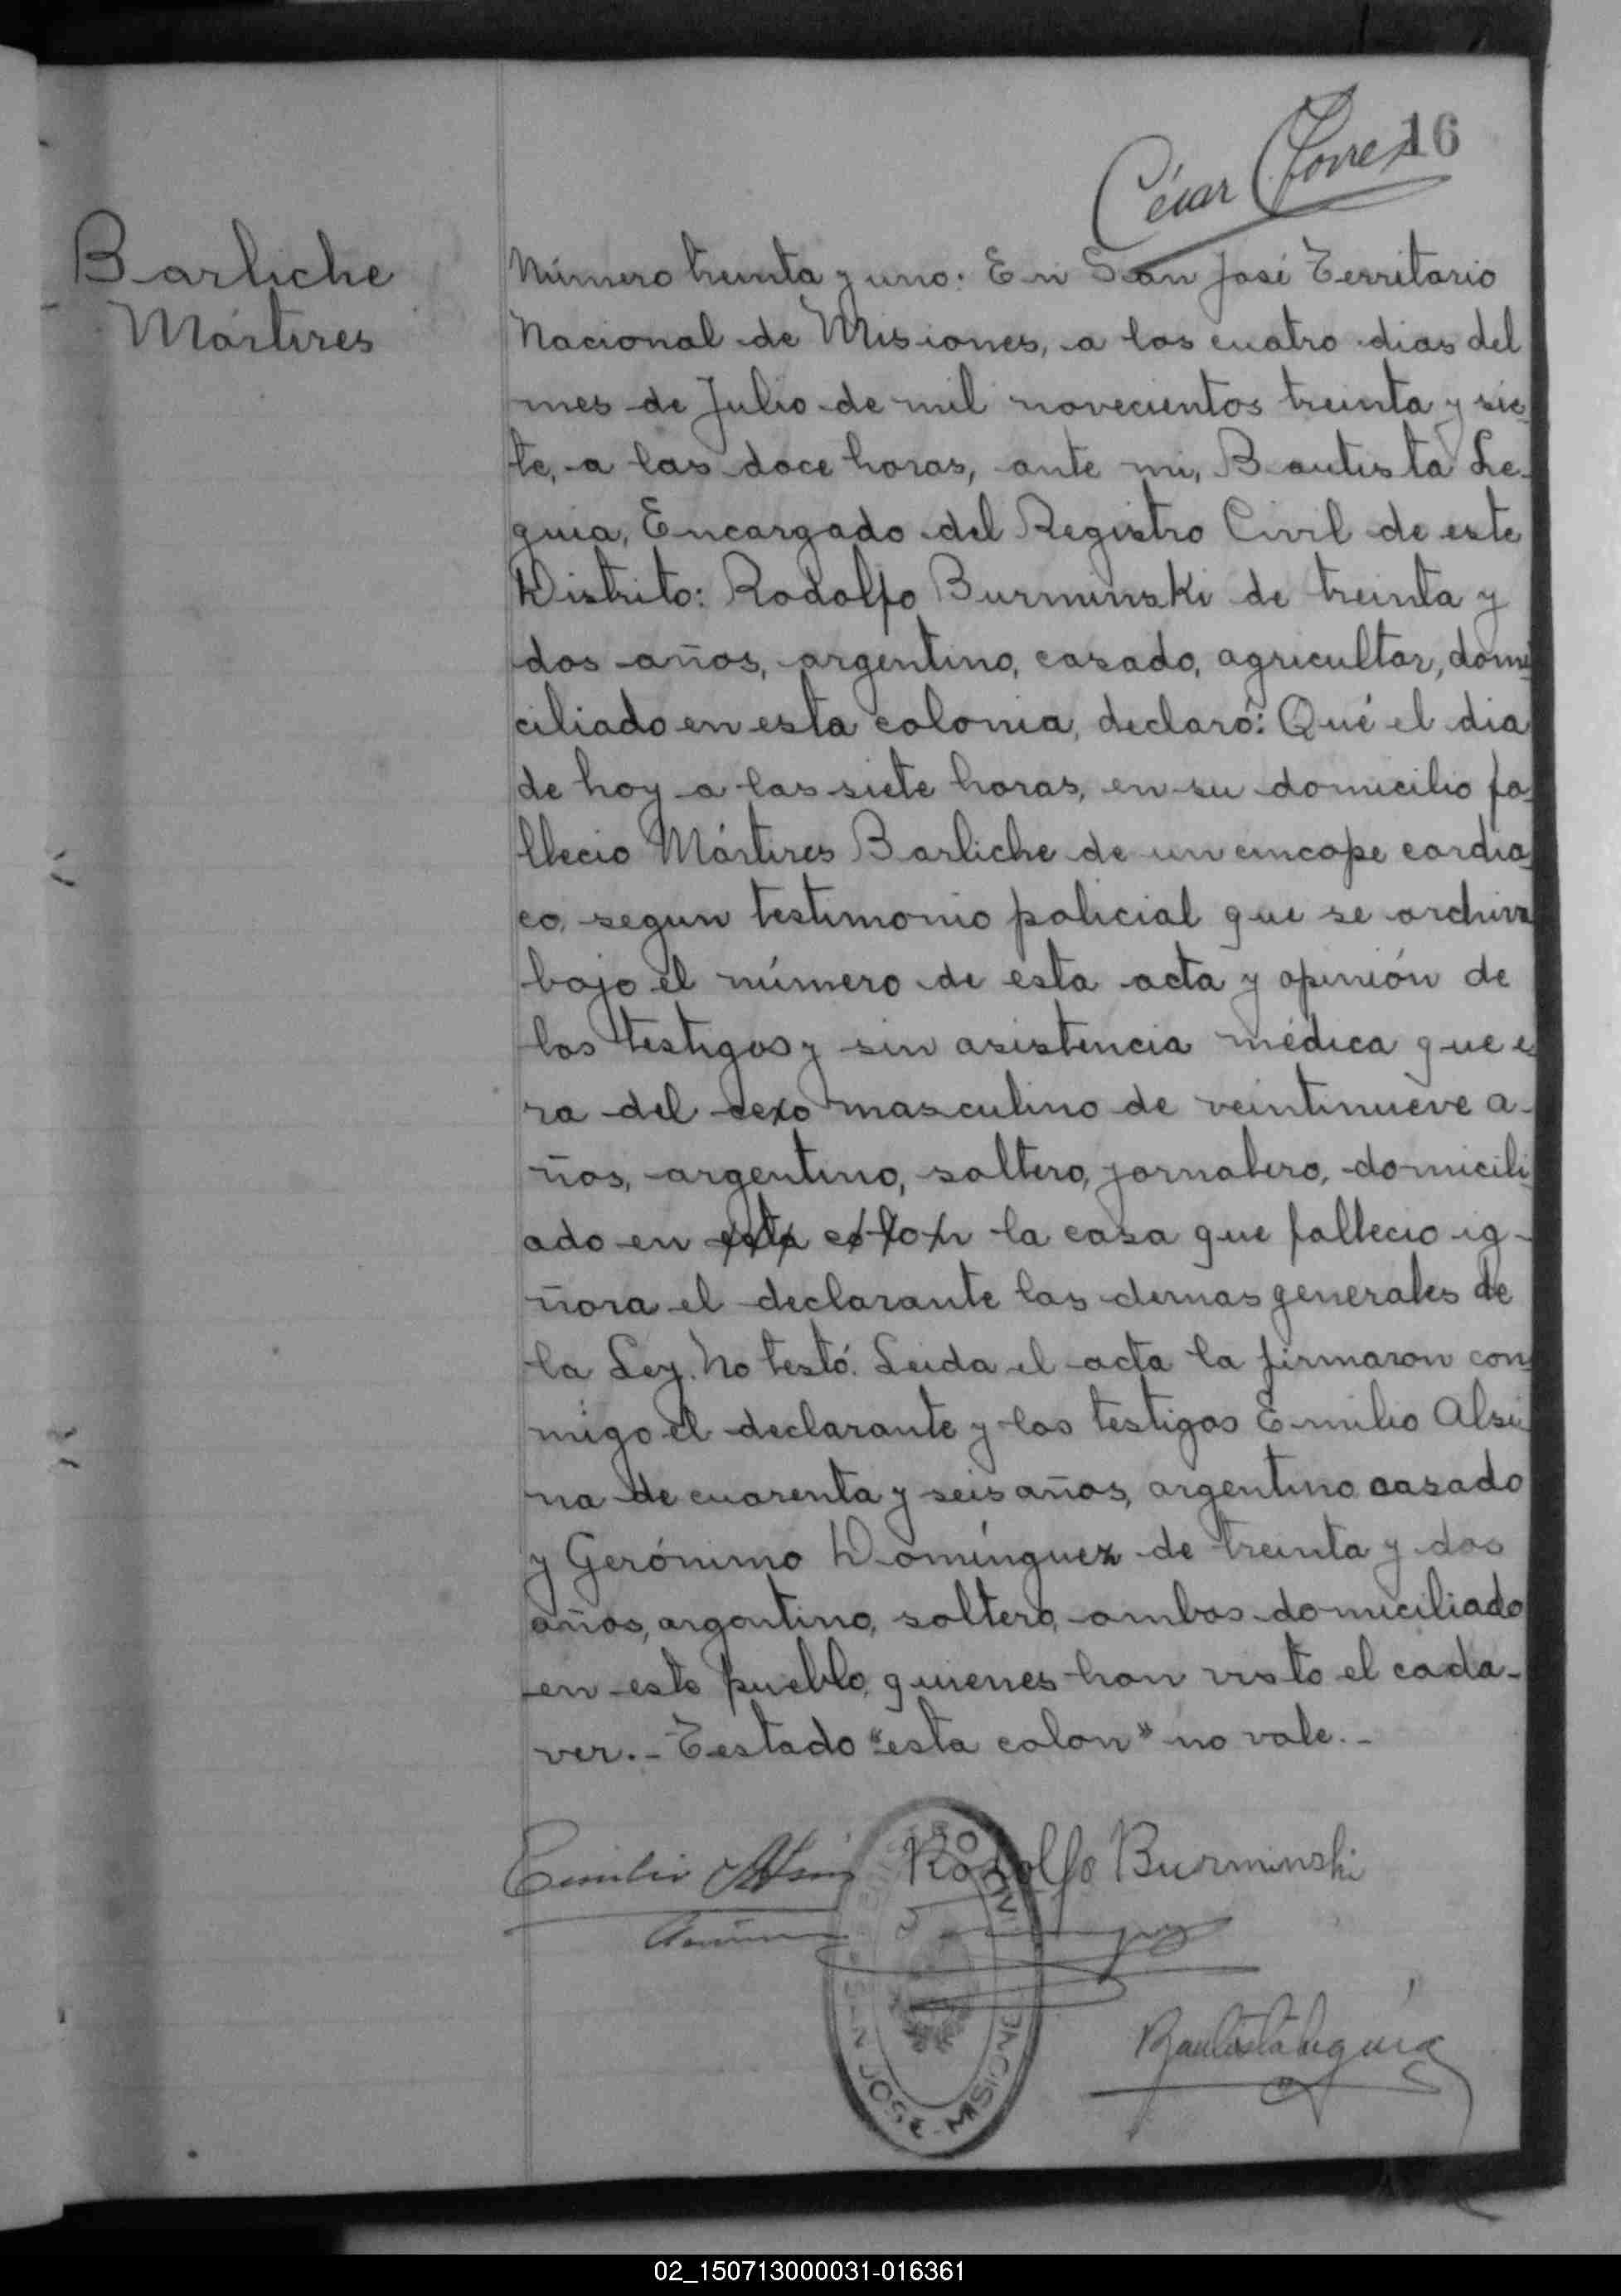 César Torres 16
Barliche
Mártires
Número treinta y uno: En San José Territorio
Nacional de Misiones, a los cuatro dias del
mes de Julio de mil novecientos treinta y sie-
te, a las doce horas, ante mi, Bautista Le-
guia, Encargado del Registro Civil de este
Distrito: Rodolfo Burminski de treinta y
dos años, argentino, casado, agricultor, domi-
ciliado en esta colonia, declaró: Qué el dia
de hoy a las siete horas, en su domicilio fa-
llecio Mártires Barliche de un cincope cardia-
co, segun testimonio policial que se archiva
bajo el número de esta acta y opinión de
los testigos y sin asistencia médica que e-
ra del cexo masculino de veintinueve a-
ños, argentino, soltero, jornalero, domicili-
ado en esta colon la casa que fallecio ig-
ñora el declarante las demas generales de
la Ley. No testó. Leida el acta la firmaron con-
migo el declarante y los testigos Emilio Alsi-
na de cuarenta y seis años, argentino casado
y Gerónimo Domínguez de treinta y dos
años, argentino, soltero, ambos domiciliado
en este pueblo, quienes han visto el cada-
ver.- Testado "esta colon" no vale.-
Emilio Alsina Rodolfo Burminski
Bautista Leguia
SAN JOSÉ - MISIONES
02_150713000031-016361